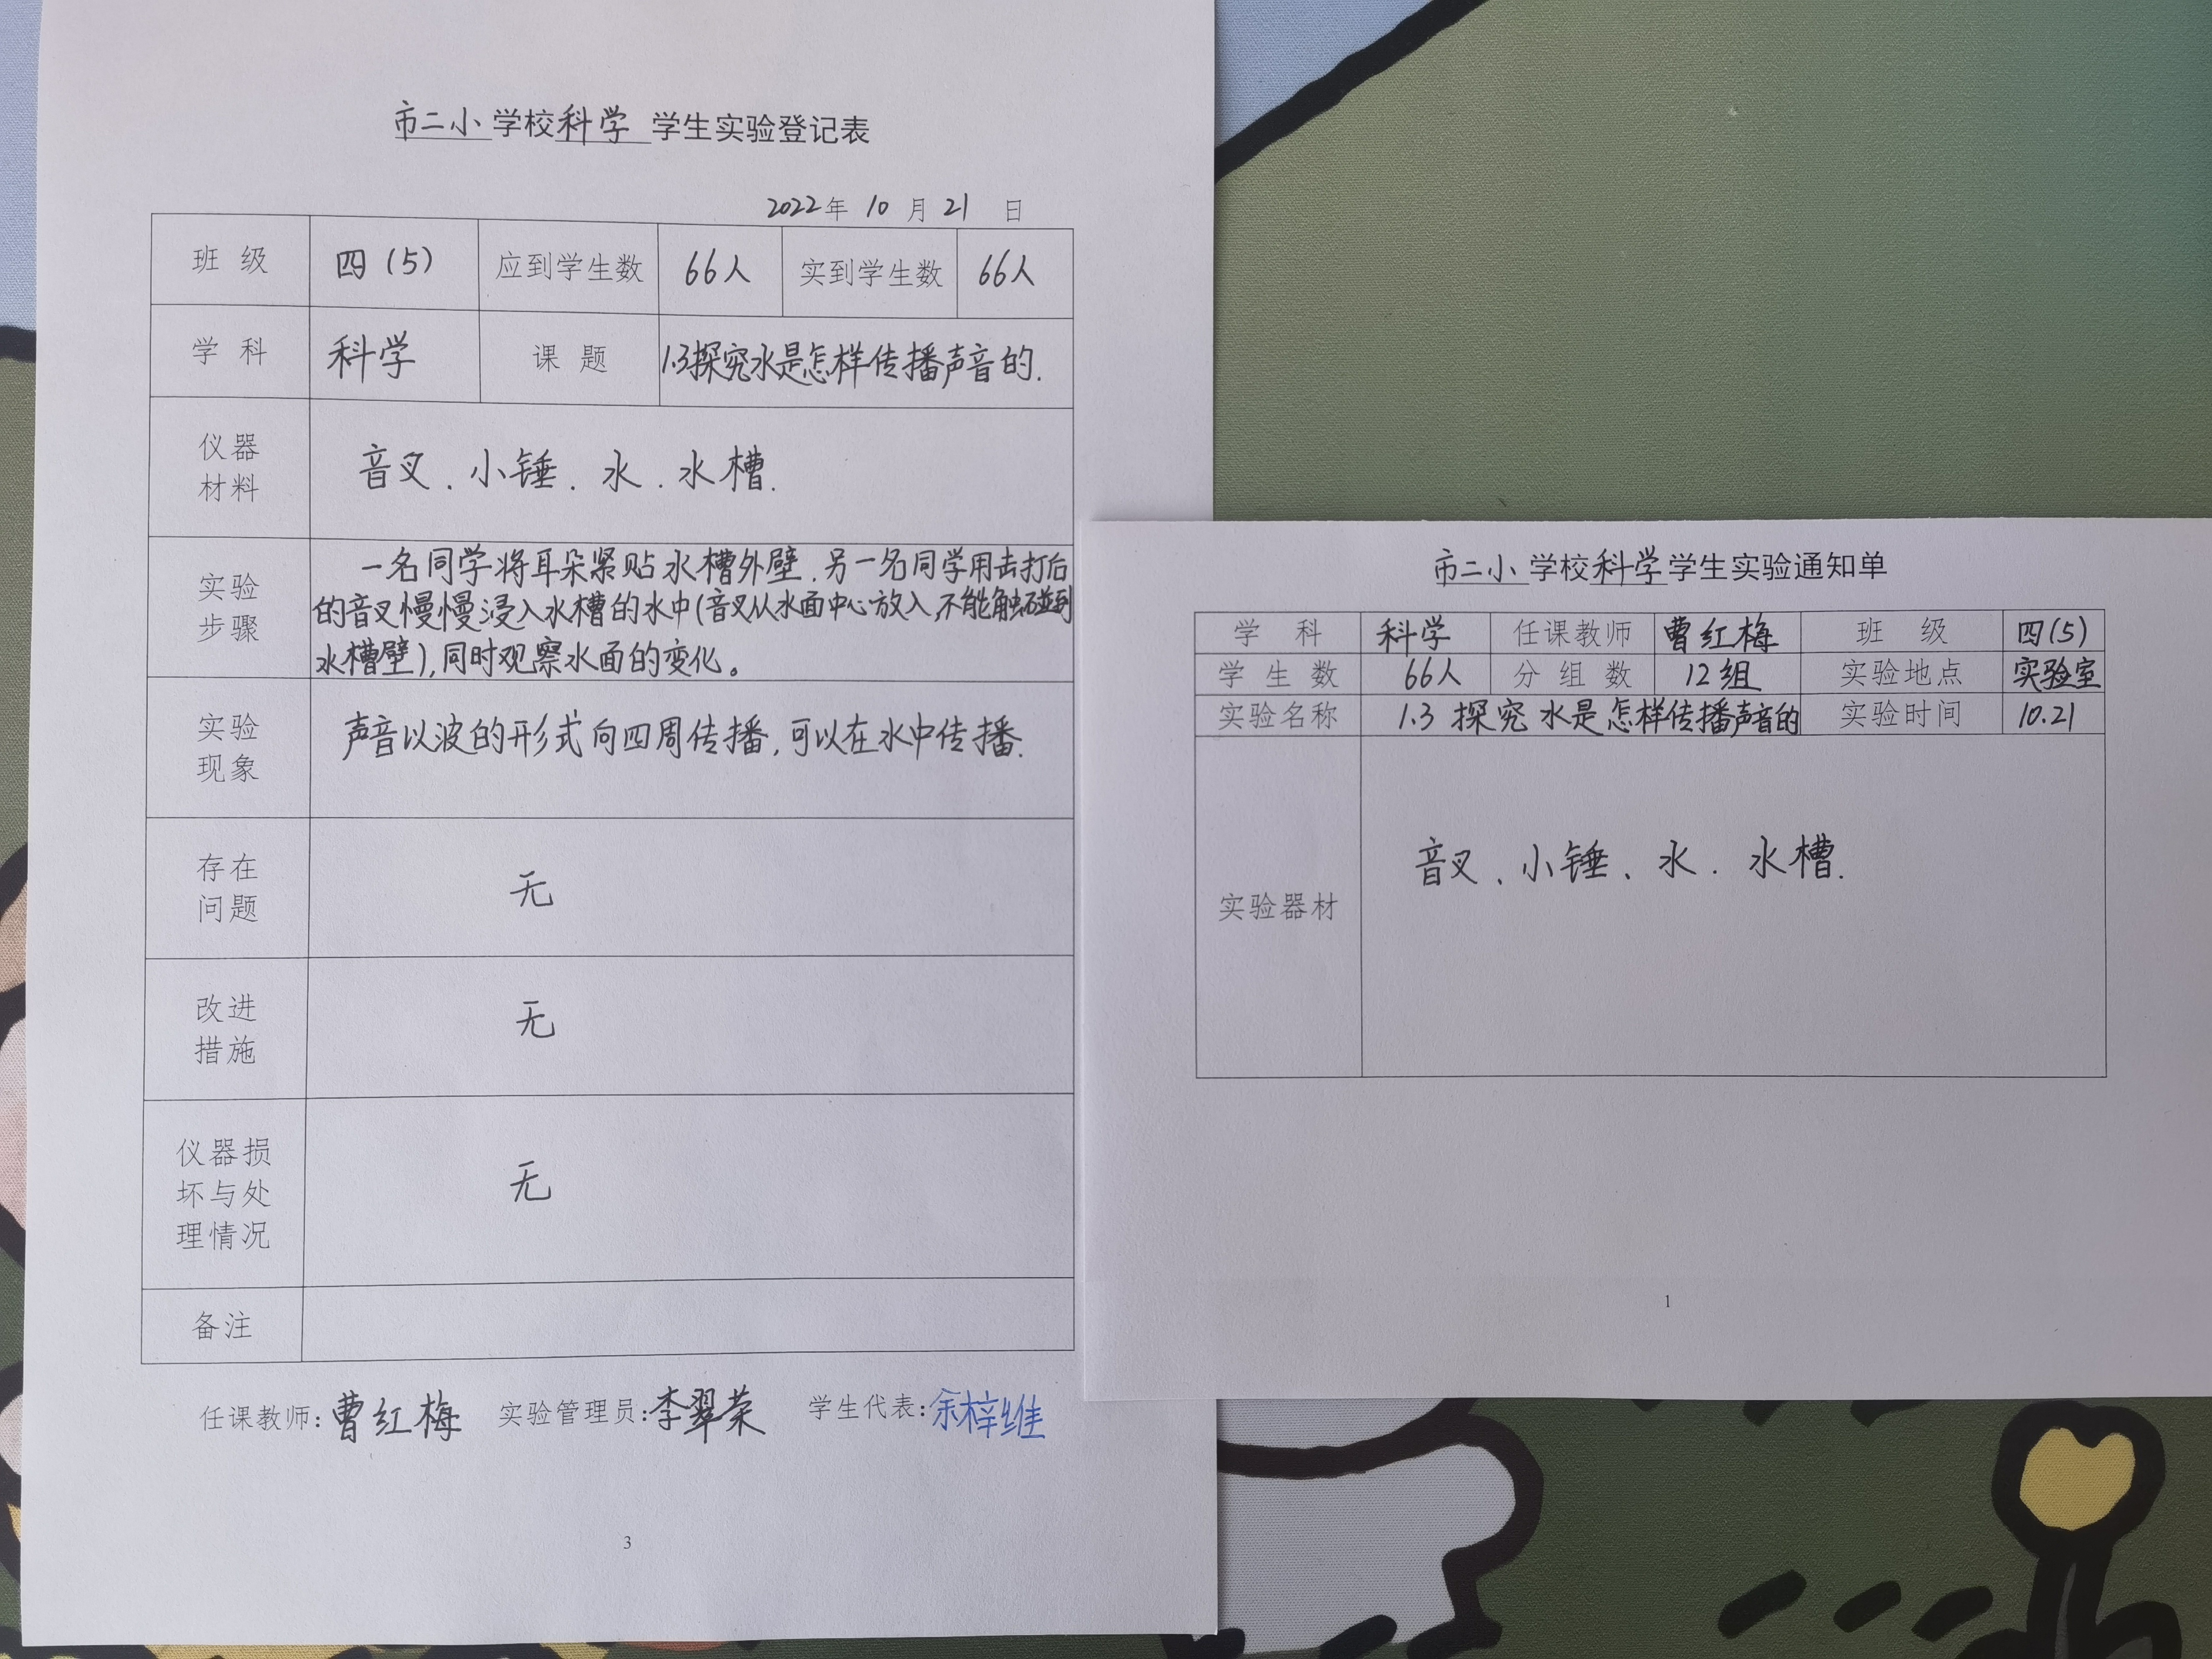 市二小 学校 科学 学生实验登记表
2022年 10 月 21 日
班 级 四(5) 应到学生数 66人 实到学生数 66人
学 科 科学 课 题 1.3探究水是怎样传播声音的.
仪器
材料
音叉、小锤、水、水槽.
实验
步骤
一名同学将耳朵紧贴水槽外壁,另一名同学用击打后
的音叉慢慢浸入水槽的水中(音叉从水面中心放入,不能触碰到
水槽壁),同时观察水面的变化。
实验
现象
声音以波的形式向四周传播,可以在水中传播.
存在
问题
无
改进
措施
无
仪器损
坏与处
理情况
无
备注
任课教师:曹红梅 实验管理员:李翠荣 学生代表:余梓维
3
市二小 学校 科学 学生实验通知单
学 科 科学 任课教师 曹红梅 班 级 四(5)
学 生 数 66人 分 组 数 12组 实验地点 实验室
实验名称 1.3 探究水是怎样传播声音的 实验时间 10.21
实验器材
音叉、小锤、水、水槽.
1